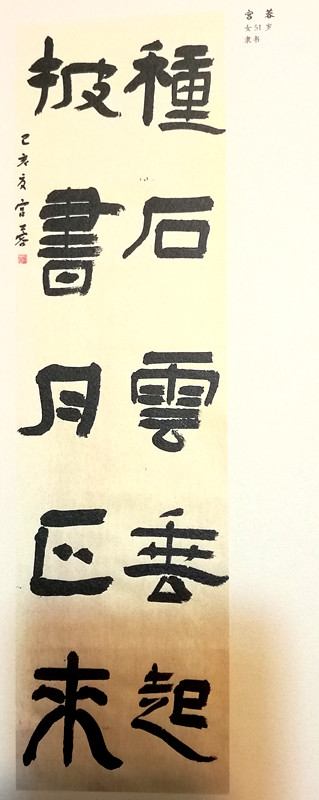 宫 蓉
女 51 岁
隶书
種石雲垂起
披書月正來
己亥夏宫蓉